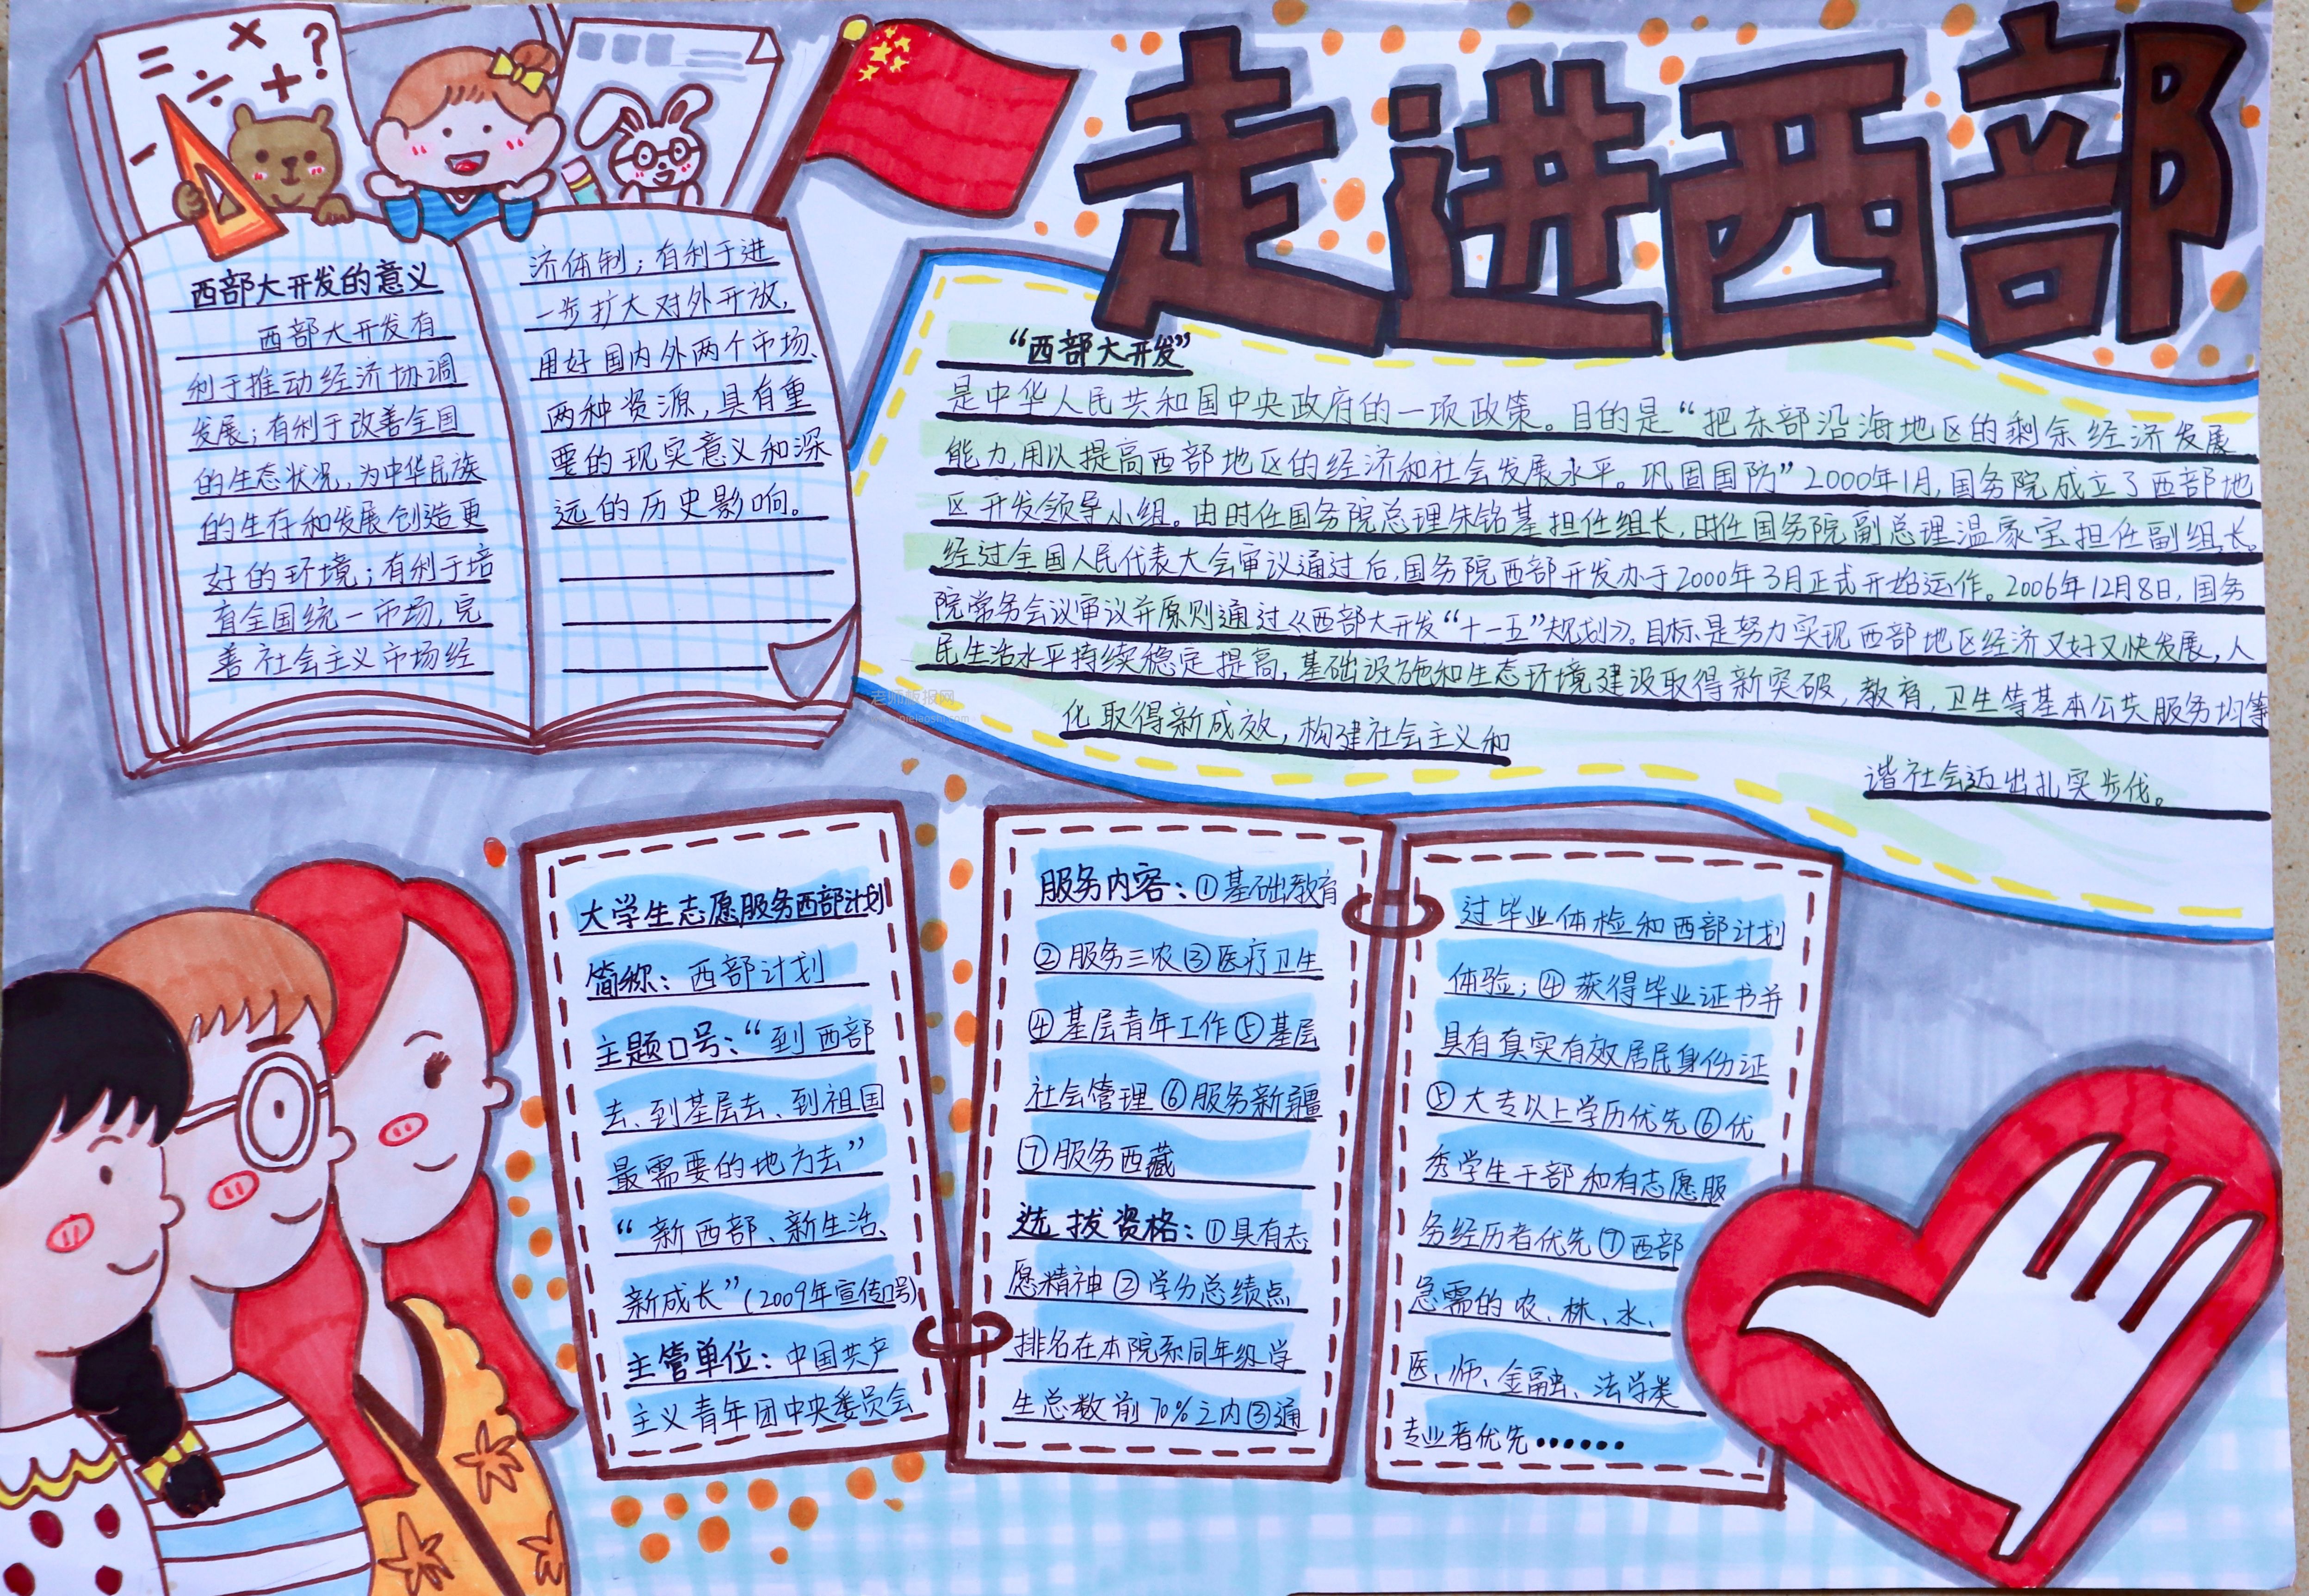 走进西部
西部大开发的意义
西部大开发有
利于推动经济协调
发展；有利于改善全国
的生态状况，为中华民族
的生存和发展创造更
好的环境；有利于培
育全国统一市场，完
善社会主义市场经
济体制；有利于进
一步扩大对外开放，
用好国内外两个市场、
两种资源，具有重
要的现实意义和深
远的历史影响。
“西部大开发”
是中华人民共和国中央政府的一项政策。目的是“把东部沿海地区的剩余经济发展
能力，用以提高西部地区的经济和社会发展水平。巩固国防”2000年1月，国务院成立了西部地
区开发领导小组。由时任国务院总理朱镕基担任组长，时任国务院副总理温家宝担任副组长。
经过全国人民代表大会审议通过后，国务院西部开发办于2000年3月正式开始运作。2006年12月8日，国务
院常务会议审议并原则通过《西部大开发“十一五”规划》。目标是努力实现西部地区经济又好又快发展，人
民生活水平持续稳定提高，基础设施和生态环境建设取得新突破，教育，卫生等基本公共服务均等
化取得新成效，构建社会主义和
谐社会迈出扎实步伐。
老师板报网
大学生志愿服务西部计划
简称：西部计划
主题口号：“到西部
去、到基层去、到祖国
最需要的地方去”
“新西部、新生活、
新成长”（2009年宣传口号）
主管单位：中国共产
主义青年团中央委员会
服务内容：①基础教育
②服务三农③医疗卫生
④基层青年工作⑤基层
社会管理⑥服务新疆
⑦服务西藏
选拔资格：①具有志
愿精神②学分总绩点
排名在本院系同年级学
生总数前70%之内③通
过毕业体检和西部计划
体验；④获得毕业证书并
具有真实有效居民身份证
⑤大专以上学历优先⑥优
秀学生干部和有志愿服
务经历者优先⑦西部
急需的农、林、水、
医、师、金融、法学类
专业者优先······